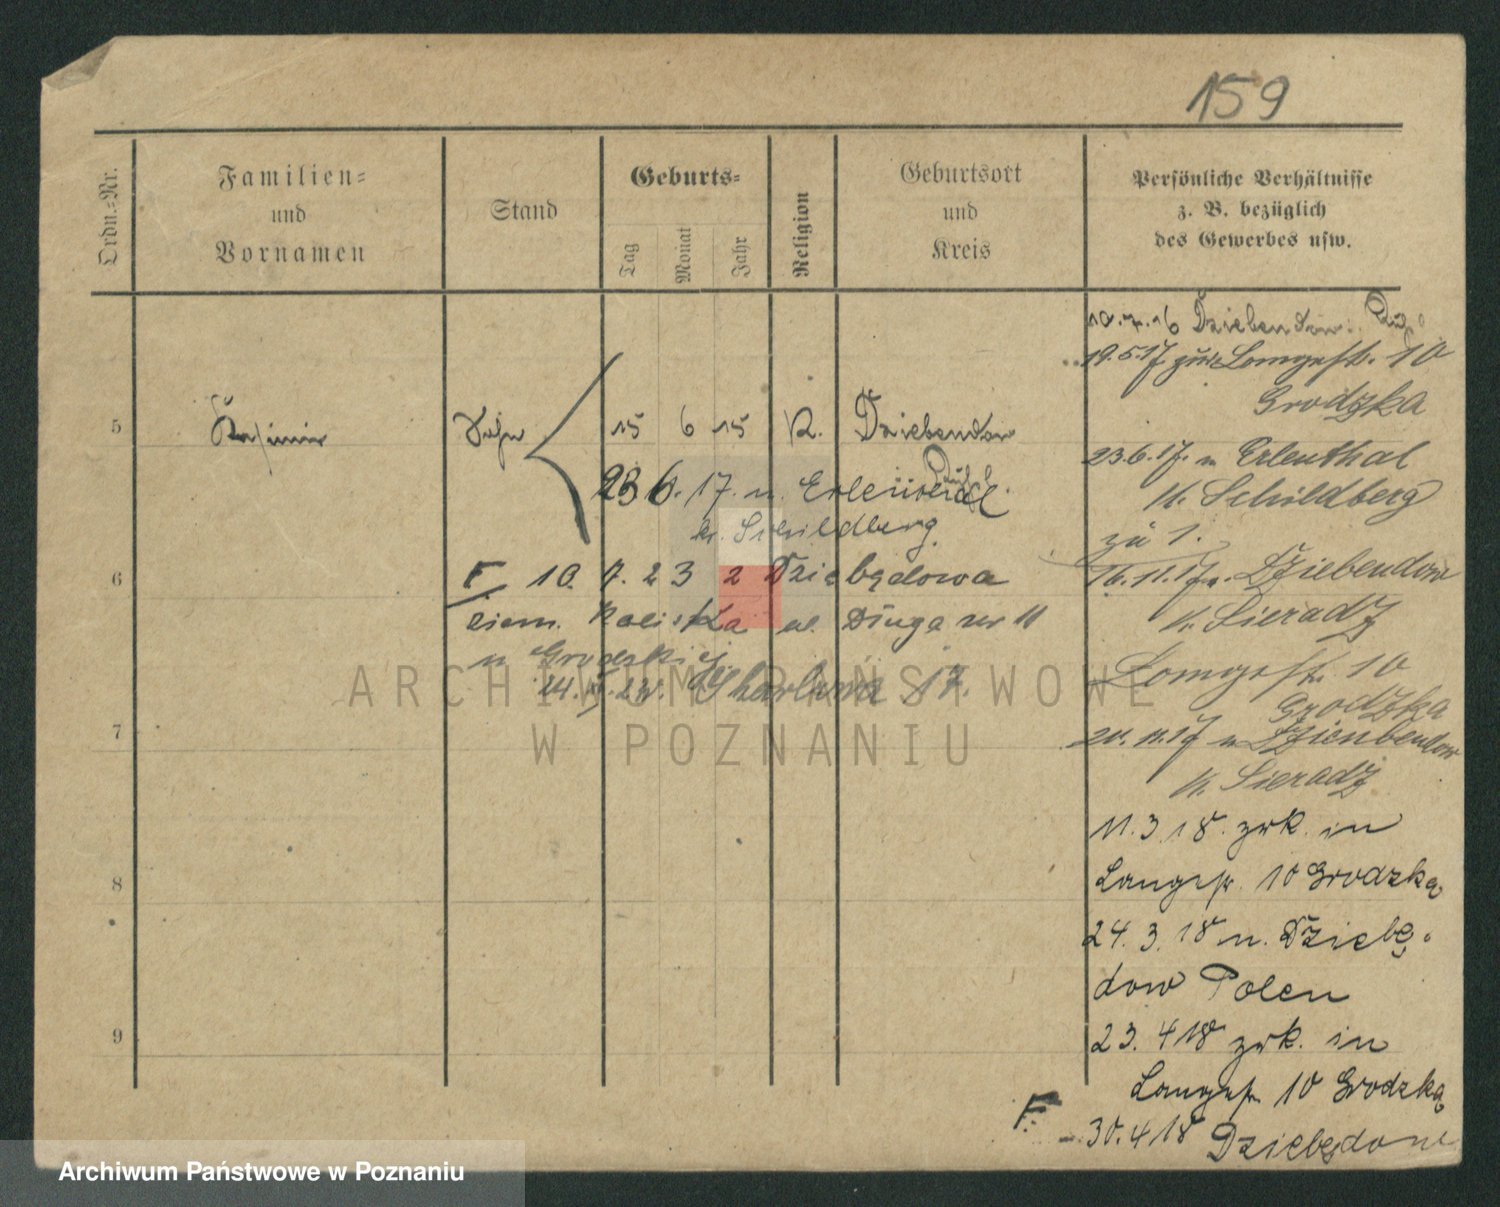 159
Ordn.-Nr.
Familien-
und
Vornamen
Stand
Geburts-
Tag
Monat
Jahr
Religion
Geburtsort
und
Kreis
Persönliche Verhältnisse
z. B. bezüglich
des Gewerbes usw.
5
Kasimir
Sohn
15 6 15 K. Dziebendow
23 6. 17. n.
kr. Schildberg.
6
F 10. 7. 23 z Dziebędowa
ziem. Kaliska ul. Długa nr 11
7
8
9
10.7.16 Dziebendow
19.5.17 zur Langestr. 10
Grodzka
23.6.17. n Erlenthal
K. Schildberg
zu 1.
16.11.17 n. Dziebendow
K. Sieradz
Langestr. 10
Grodzka
20.11.17 n Dzienbendow
K. Sieradz
11.3.18. zrk. in
Langestr. 10 Grodzka
24.3.18 n. Dziebę-
dow Polen
23.4 18 zrk. in
Langestr 10 Grodzka
F.
30.4 18 Dziebędow
ARCHIWUM PAŃSTWOWE
W POZNANIU
Archiwum Państwowe w Poznaniu